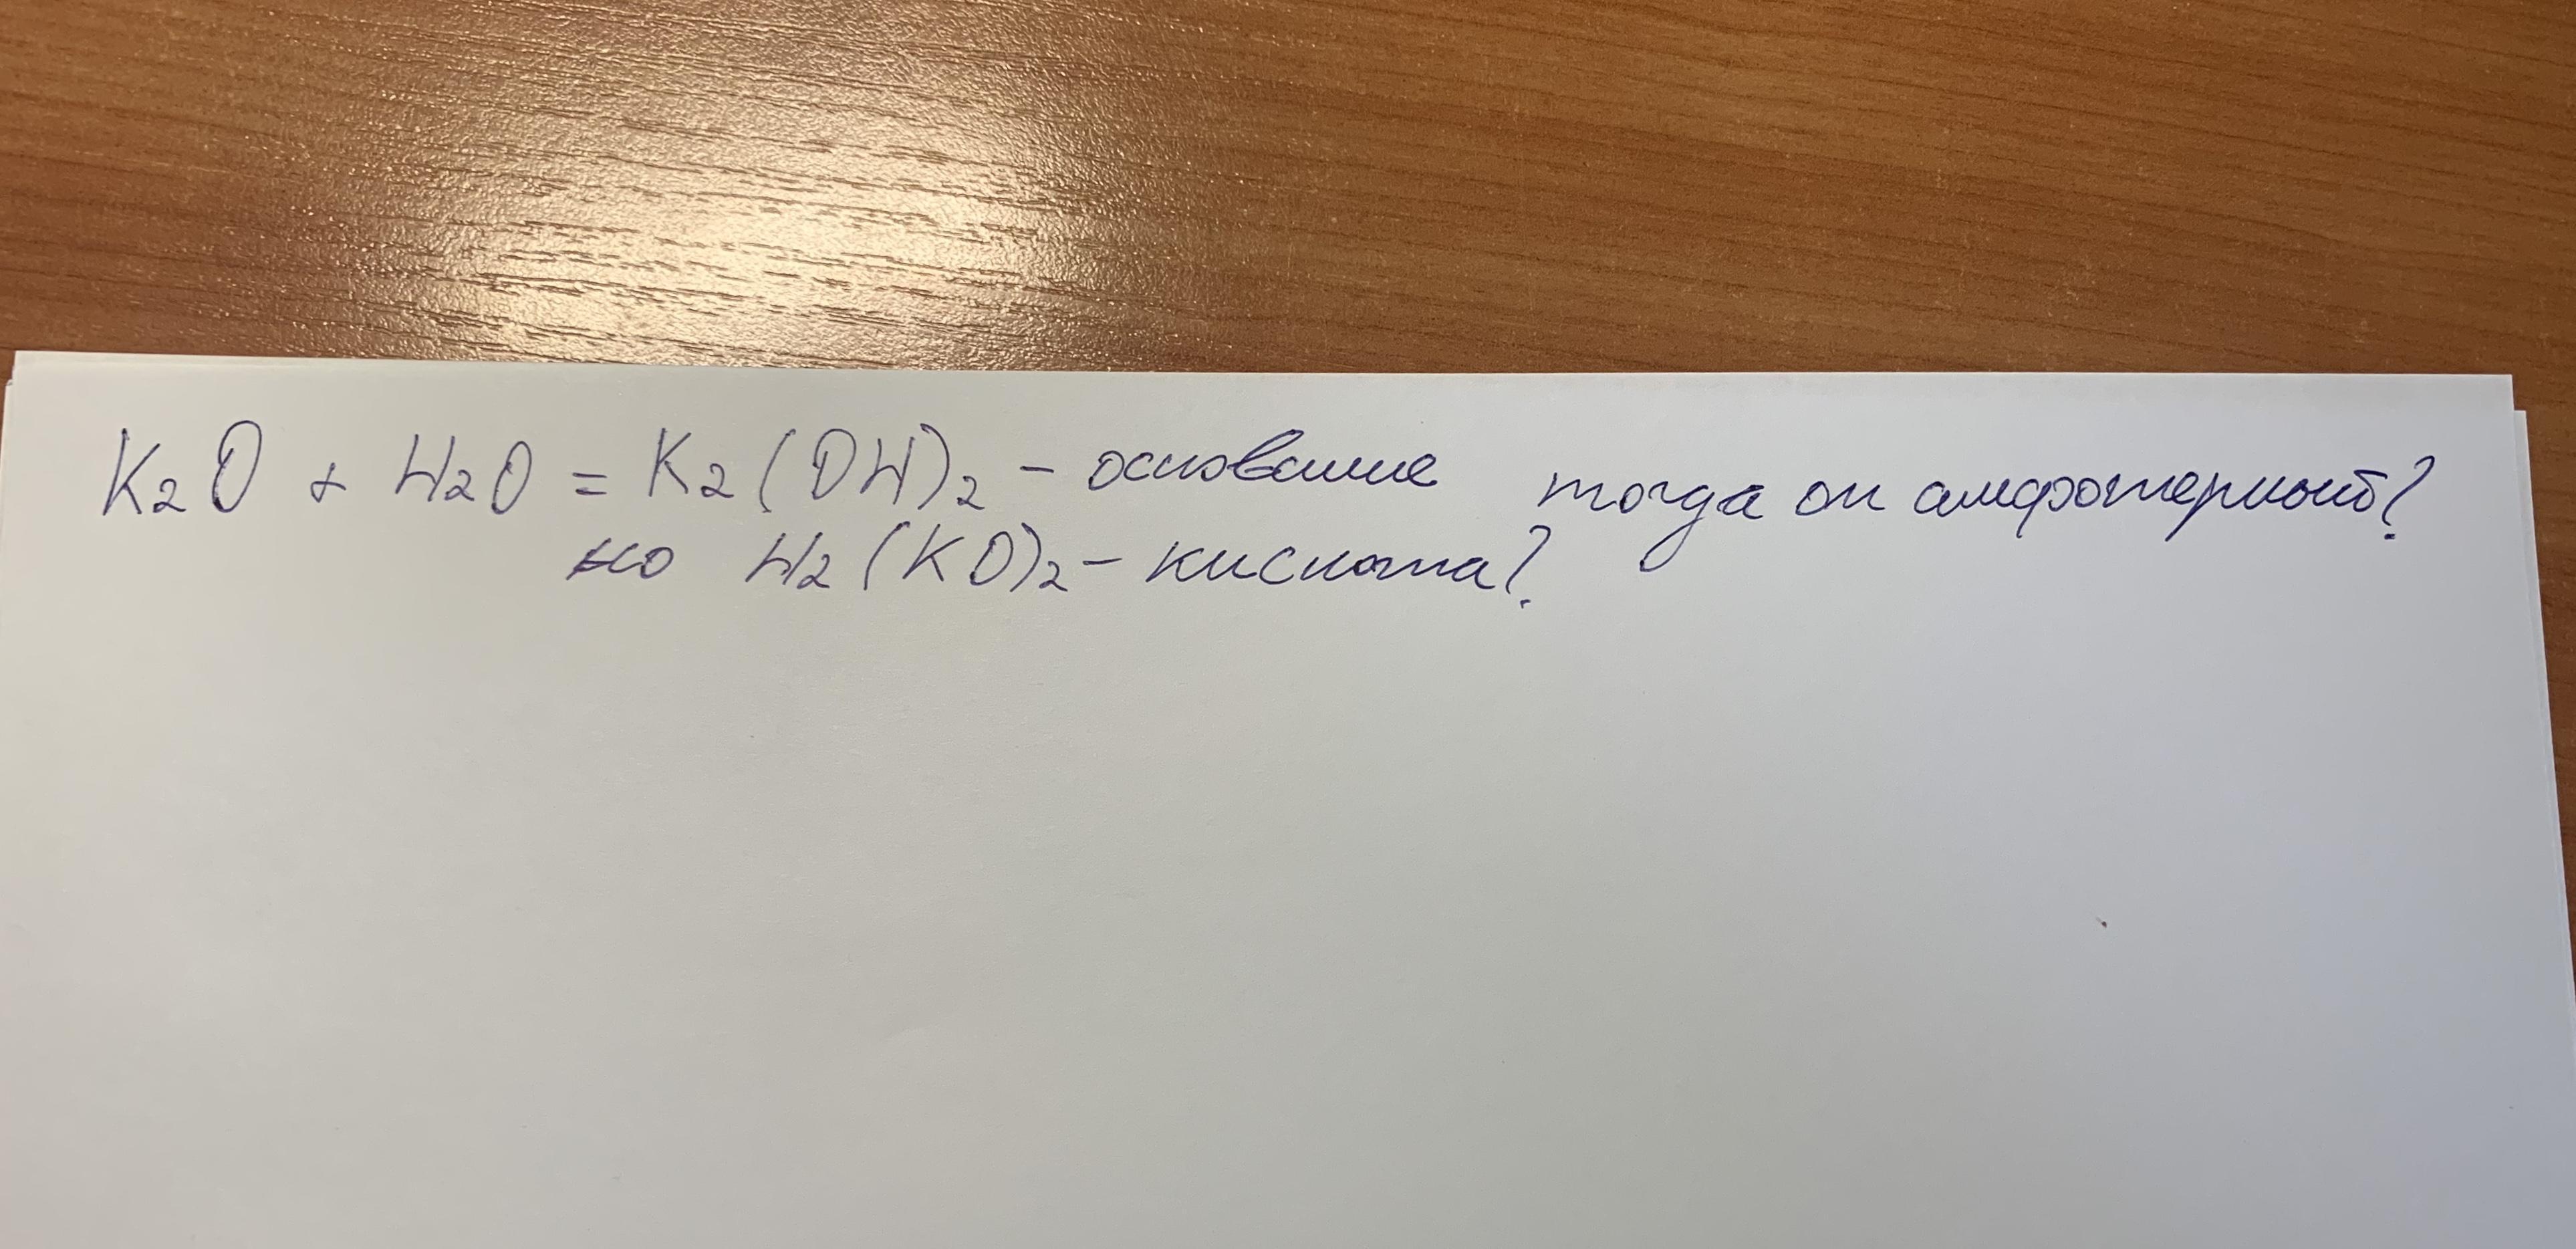 K₂O + H₂O = K₂(OH)₂ - основание тогда он амфотерный?
но H₂(KO)₂ - кислота?